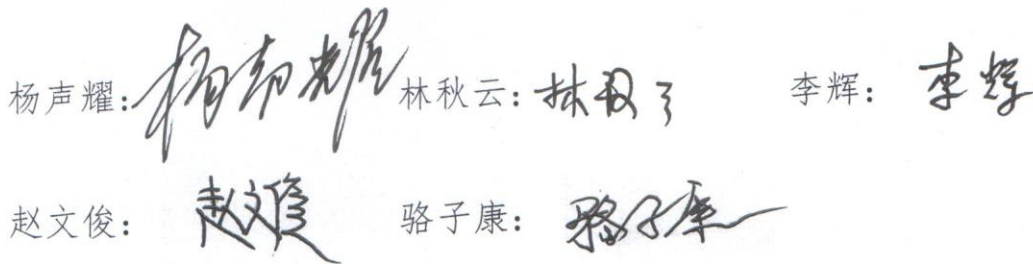 杨声耀：杨声耀 林秋云：林秋云 李辉：李辉
赵文俊：赵文俊 骆子康：骆子康